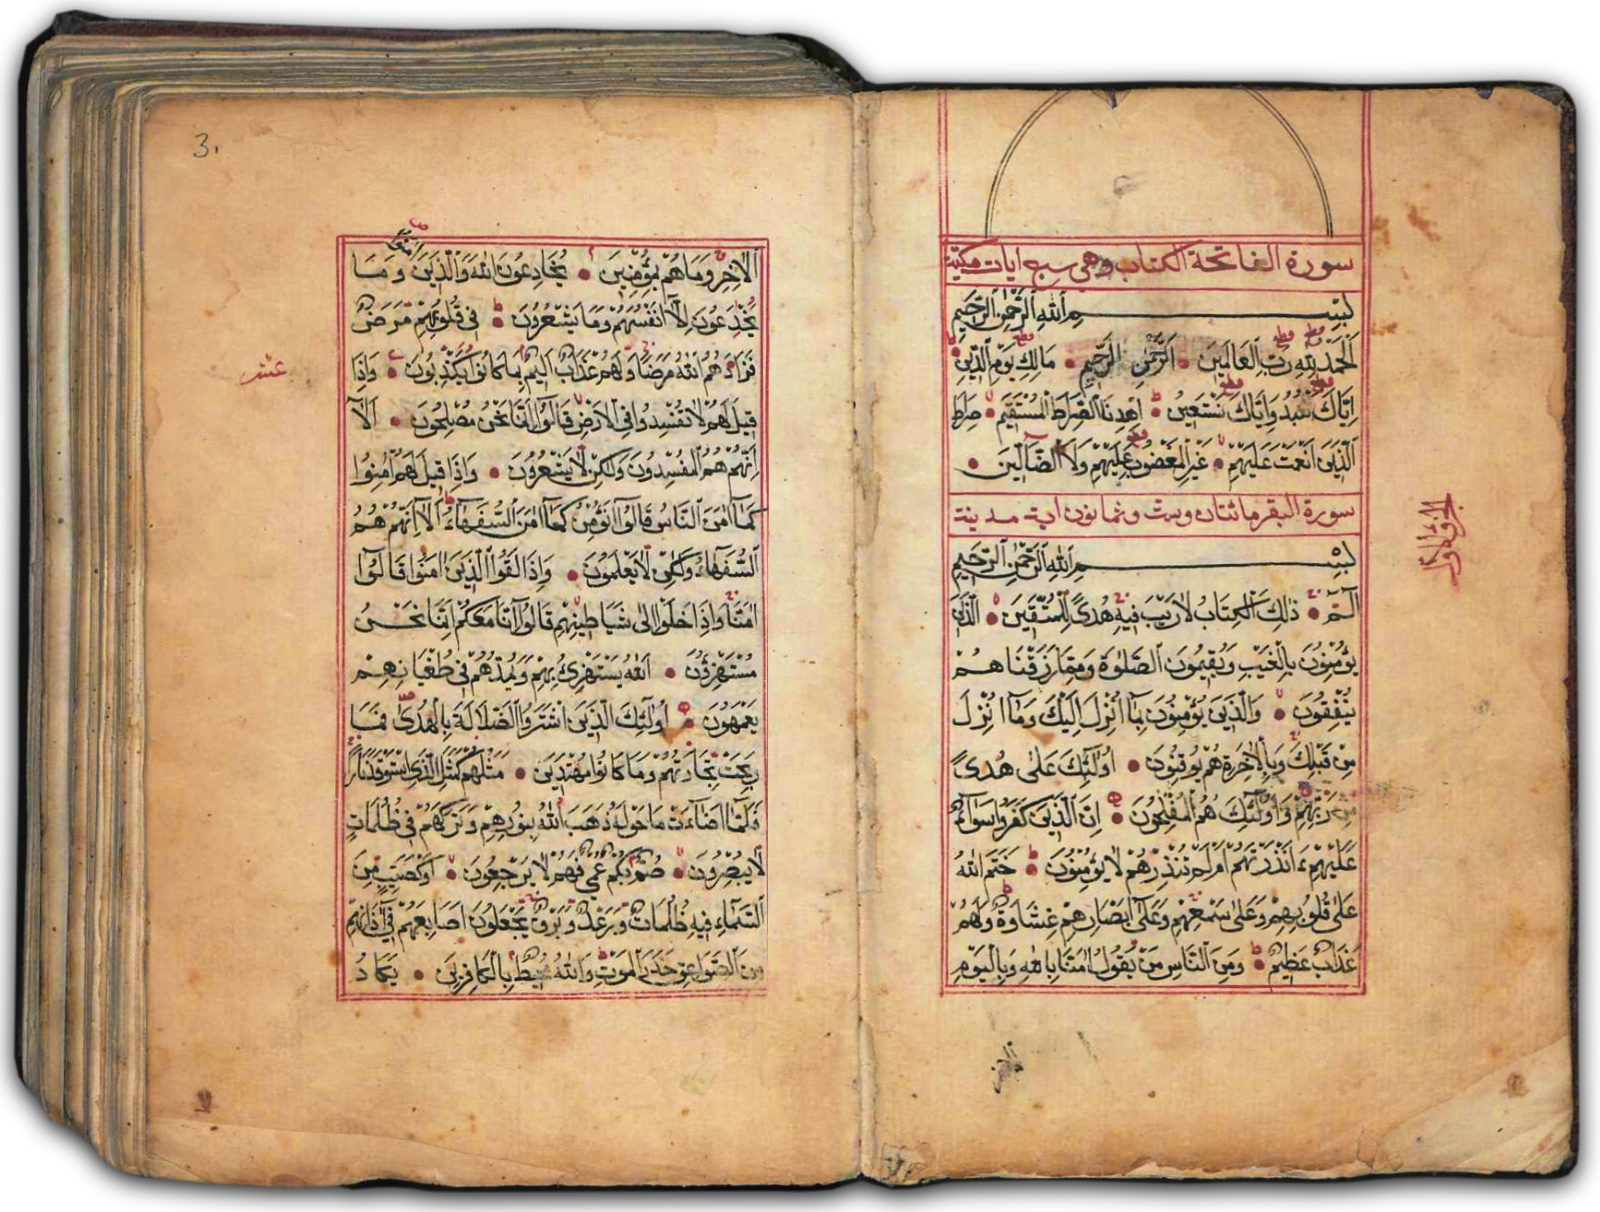 سورة الفاتحة الكتاب وهي سبع ايات مكية
بِسْمِ اللهِ الرَّحْمٰنِ الرَّحِيمِ
اَلْحَمْدُ لِلّٰهِ رَبِّ الْعَالَمِينَ • اَلرَّحْمٰنِ الرَّحِيمِ • مَالِكِ يَوْمِ الدِّينِ
اِيَّاكَ نَعْبُدُ وَاِيَّاكَ نَسْتَعِينُ • اِهْدِنَا الصِّرَاطَ الْمُسْتَقِيمَ • صِرَاطَ
الَّذِينَ اَنْعَمْتَ عَلَيْهِمْ • غَيْرِ الْمَغْضُوبِ عَلَيْهِمْ وَلَا الضَّالِّينَ •
سورة البقر مائتان وست وثمانون اية مدينة
بِسْمِ اللهِ الرَّحْمٰنِ الرَّحِيمِ
الٓمٓ • ذٰلِكَ الْكِتَابُ لَا رَيْبَ فِيهِ هُدًى لِلْمُتَّقِينَ • الَّذِينَ
يُؤْمِنُونَ بِالْغَيْبِ وَيُقِيمُونَ الصَّلٰوةَ وَمِمَّا رَزَقْنَاهُمْ
يُنْفِقُونَ • وَالَّذِينَ يُؤْمِنُونَ بِمَٓا اُنْزِلَ اِلَيْكَ وَمَٓا اُنْزِلَ
مِنْ قَبْلِكَ وَبِالْاٰخِرَةِ هُمْ يُوقِنُونَ • اُولٰٓئِكَ عَلٰى هُدًى
مِنْ رَبِّهِمْ وَاُولٰٓئِكَ هُمُ الْمُفْلِحُونَ • اِنَّ الَّذِينَ كَفَرُوا سَوَٓاءٌ
عَلَيْهِمْ ءَاَنْذَرْتَهُمْ اَمْ لَمْ تُنْذِرْهُمْ لَا يُؤْمِنُونَ • خَتَمَ اللهُ
عَلٰى قُلُوبِهِمْ وَعَلٰى سَمْعِهِمْ وَعَلٰٓى اَبْصَارِهِمْ غِشَاوَةٌ وَلَهُمْ
عَذَابٌ عَظِيمٌ • وَمِنَ النَّاسِ مَنْ يَقُولُ اٰمَنَّا بِاللهِ وَبِالْيَوْمِ
3.
الْاٰخِرِ وَمَا هُمْ بِمُؤْمِنِينَ • يُخَادِعُونَ اللهَ وَالَّذِينَ اٰمَنُوا وَمَا
يَخْدَعُونَ اِلَّٓا اَنْفُسَهُمْ وَمَا يَشْعُرُونَ • فِي قُلُوبِهِمْ مَرَضٌ
فَزَادَهُمُ اللهُ مَرَضًا وَلَهُمْ عَذَابٌ اَلِيمٌ بِمَا كَانُوا يَكْذِبُونَ • وَاِذَا
قِيلَ لَهُمْ لَا تُفْسِدُوا فِي الْاَرْضِ قَالُٓوا اِنَّمَا نَحْنُ مُصْلِحُونَ • اَلَٓا
اِنَّهُمْ هُمُ الْمُفْسِدُونَ وَلٰكِنْ لَا يَشْعُرُونَ • وَاِذَا قِيلَ لَهُمْ اٰمِنُوا
كَمَٓا اٰمَنَ النَّاسُ قَالُٓوا اَنُؤْمِنُ كَمَٓا اٰمَنَ السُّفَهَٓاءُ اَلَٓا اِنَّهُمْ هُمُ
السُّفَهَٓاءُ وَلٰكِنْ لَا يَعْلَمُونَ • وَاِذَا لَقُوا الَّذِينَ اٰمَنُوا قَالُٓوا
اٰمَنَّا وَاِذَا خَلَوْا اِلٰى شَيَاطِينِهِمْ قَالُٓوا اِنَّا مَعَكُمْ اِنَّمَا نَحْنُ
مُسْتَهْزِؤُنَ • اَللهُ يَسْتَهْزِئُ بِهِمْ وَيَمُدُّهُمْ فِي طُغْيَانِهِمْ
يَعْمَهُونَ • اُولٰٓئِكَ الَّذِينَ اشْتَرَوُا الضَّلَالَةَ بِالْهُدٰى فَمَا
رَبِحَتْ تِجَارَتُهُمْ وَمَا كَانُوا مُهْتَدِينَ • مَثَلُهُمْ كَمَثَلِ الَّذِي اسْتَوْقَدَ نَارًا
فَلَمَّٓا اَضَٓاءَتْ مَا حَوْلَهُ ذَهَبَ اللهُ بِنُورِهِمْ وَتَرَكَهُمْ فِي ظُلُمَاتٍ
لَا يُبْصِرُونَ • صُمٌّ بُكْمٌ عُمْيٌ فَهُمْ لَا يَرْجِعُونَ • اَوْ كَصَيِّبٍ مِنَ
السَّمَٓاءِ فِيهِ ظُلُمَاتٌ وَرَعْدٌ وَبَرْقٌ يَجْعَلُونَ اَصَابِعَهُمْ فِٓي اٰذَانِهِمْ
مِنَ الصَّوَاعِقِ حَذَرَ الْمَوْتِ وَاللهُ مُحِيطٌ بِالْكَافِرِينَ • يَكَادُ
عشر